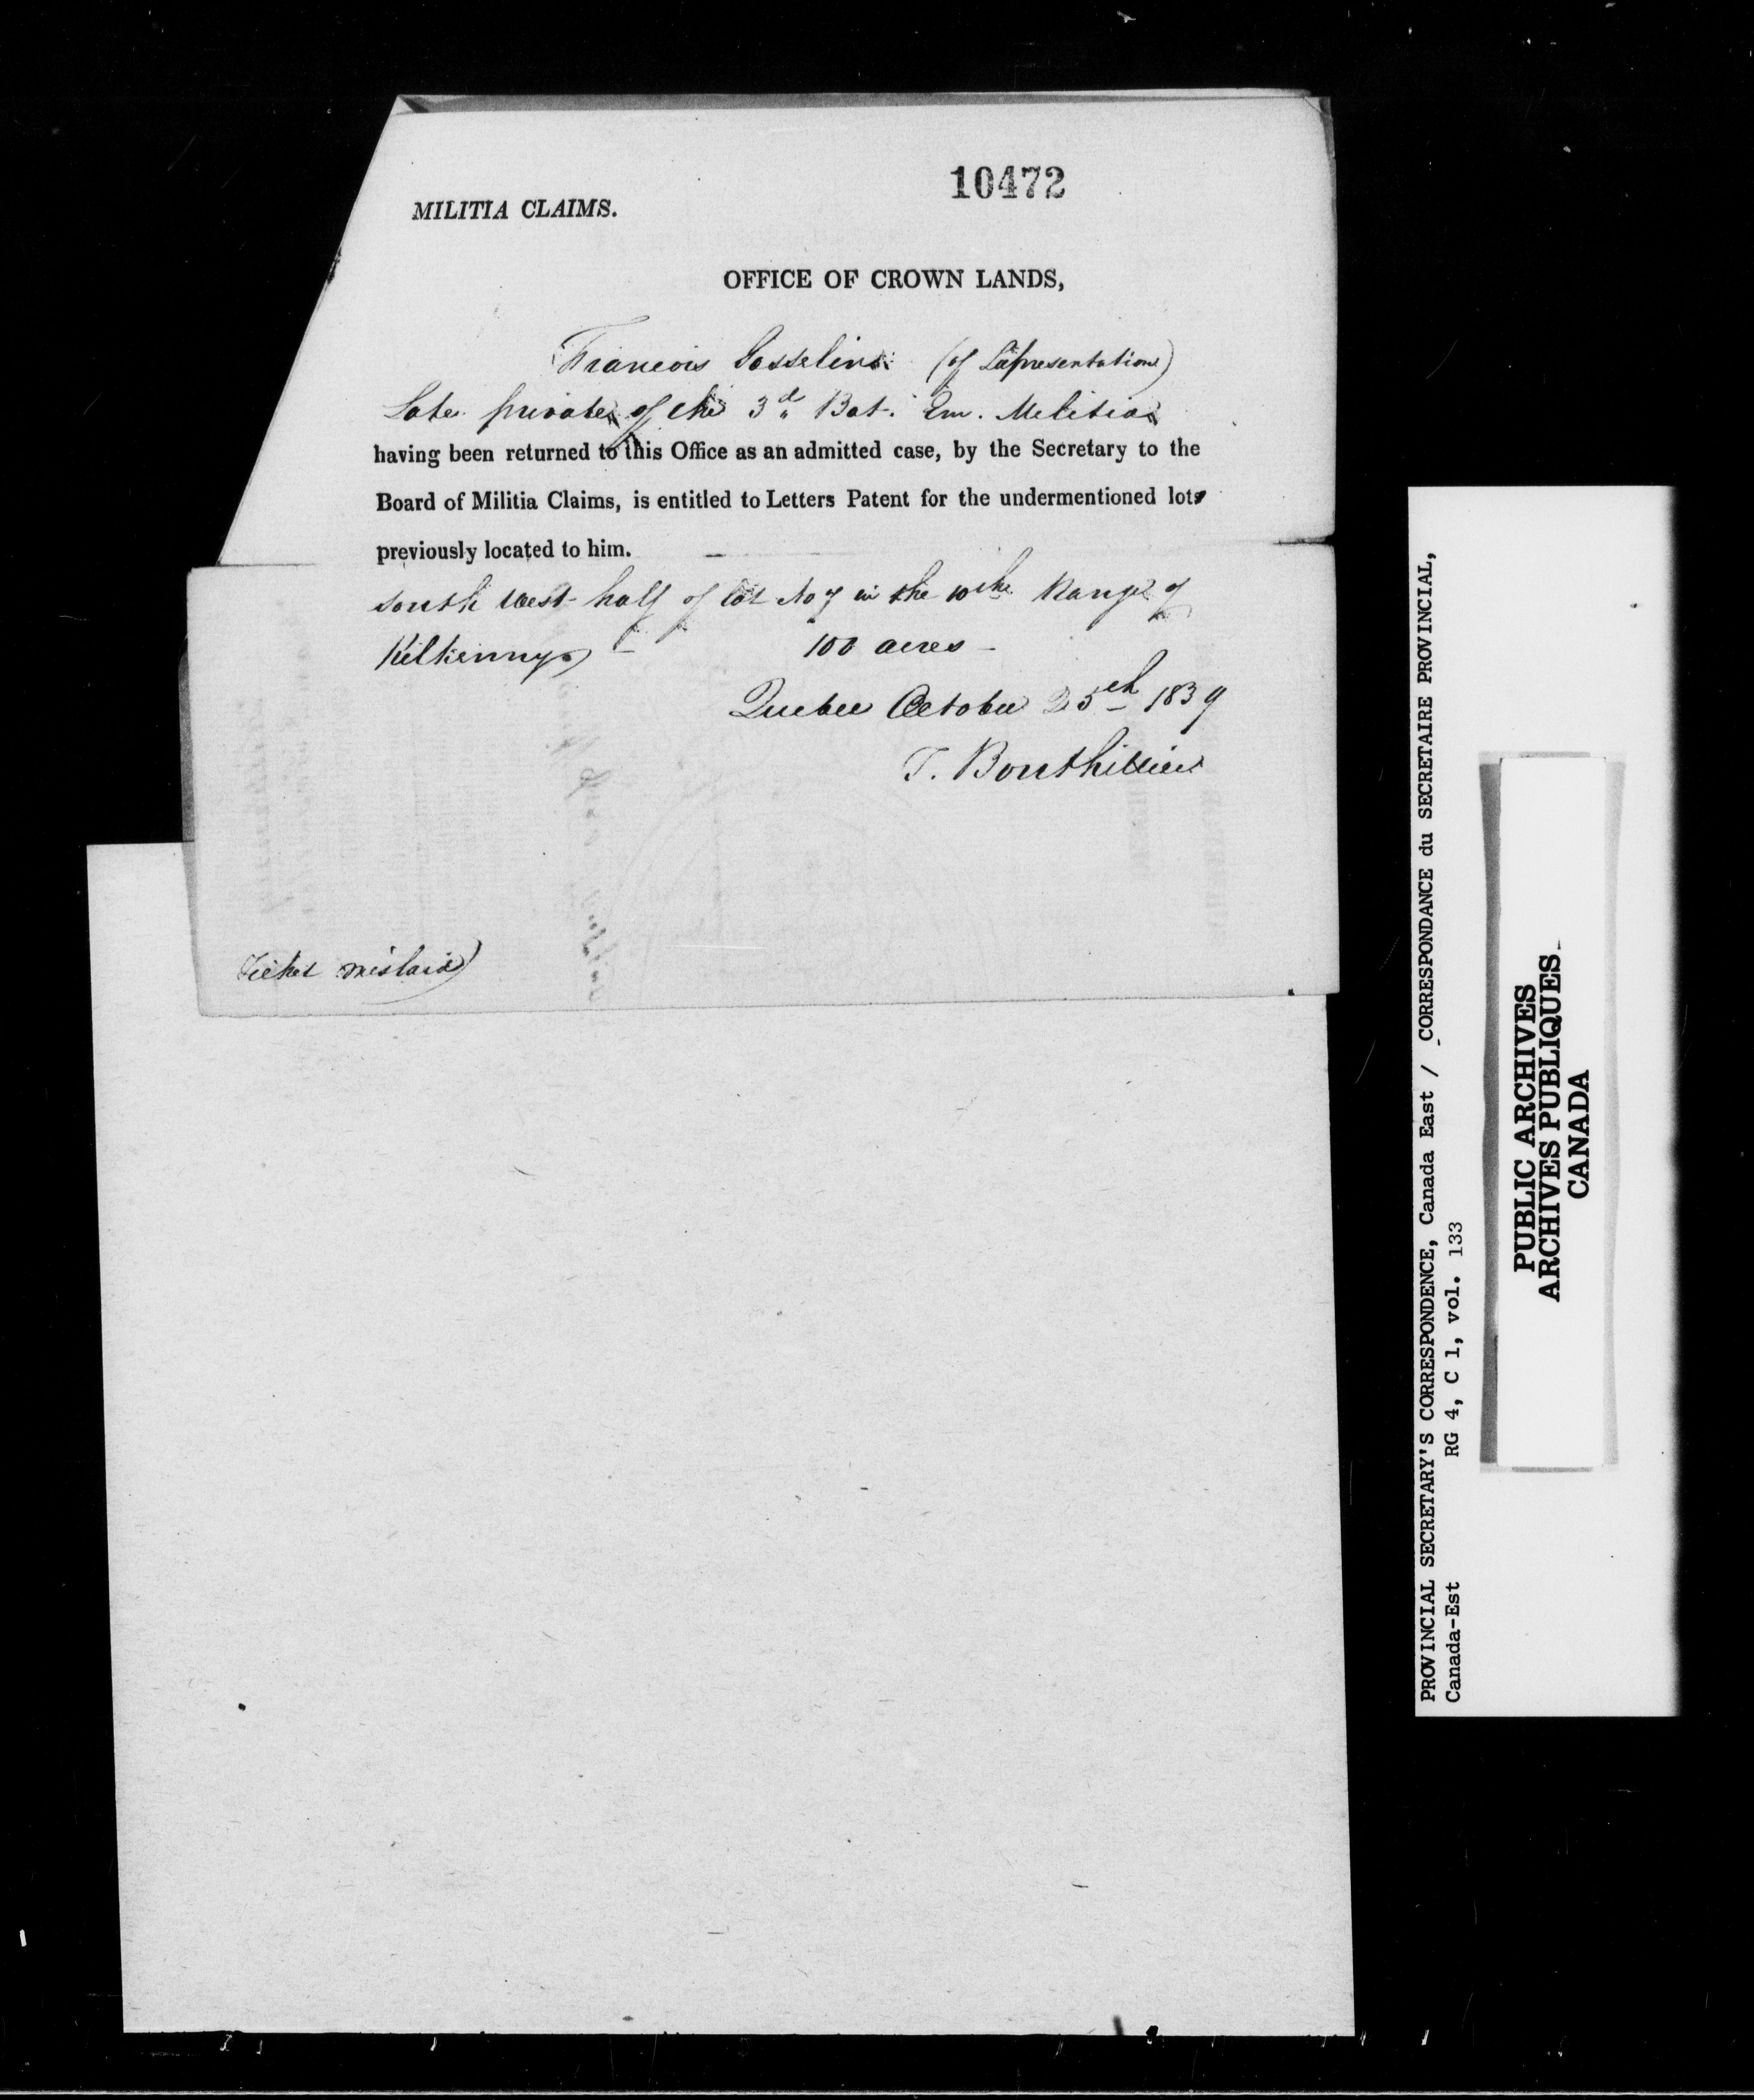 10472
MILITIA CLAIMS.
OFFICE OF CROWN LANDS,
Francois Gosselin (of Lapresentation)
Late private of the 3d Bat. Em. Militia
having been returned to this Office as an admitted case, by the Secretary to the
Board of Militia Claims, is entitled to Letters Patent for the undermentioned lot
previously located to him.
South West half of lot No 7 in the 10th Range of
Kilkenny - 100 acres -
Quebec October 25th 1839
T. Bouthillier
Ticket mislaid
PROVINCIAL SECRETARY'S CORRESPONDENCE, Canada East / CORRESPONDANCE du SECRETAIRE PROVINCIAL,
Canada-Est RG 4, C 1, vol. 133
PUBLIC ARCHIVES
ARCHIVES PUBLIQUES
CANADA